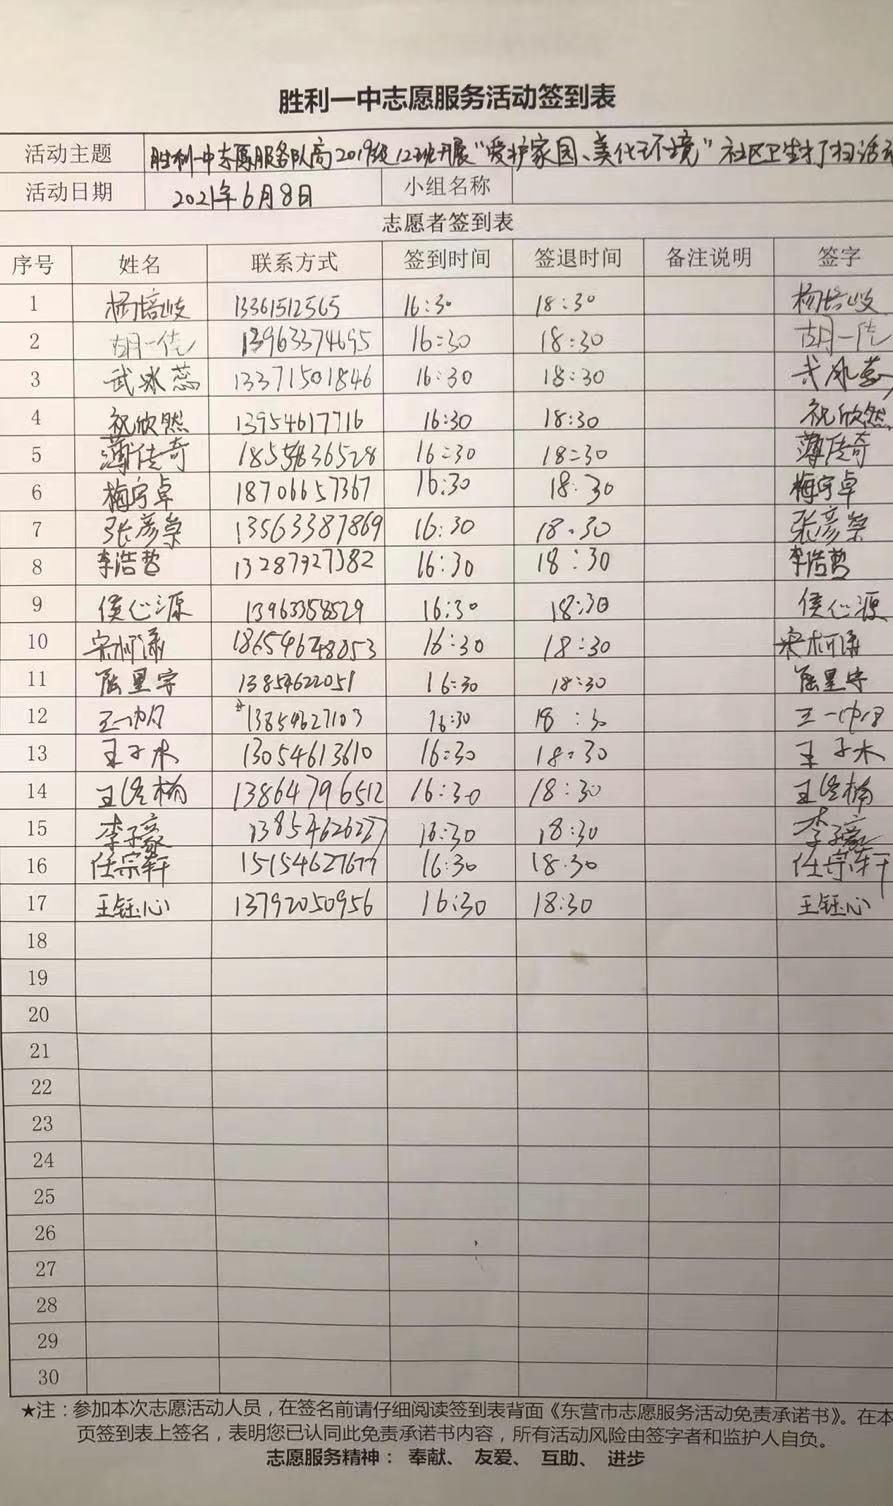 胜利一中志愿服务活动签到表
活动主题 胜利一中志愿服务队高2019级12班开展“爱护家园、美化环境”社区卫生打扫活动
活动日期 2021年6月8日 小组名称
志愿者签到表
序号 姓名 联系方式 签到时间 签退时间 备注说明 签字
1 杨培岐 13361512565 16:30 18:30 杨培岐
2 胡一 13963374695 16:30 18:30 胡一
3 武冰蕊 13371501846 16:30 18:30 武冰蕊
4 祝欣然 13954617716 16:30 18:30 祝欣然
5 薄传奇 16:30 18:30 薄传奇
6 梅宇卓 18706657367 16:30 18:30 梅宇卓
7 张彦荣 13563387869 16:30 18:30 张彦荣
8 李浩哲 13287927382 16:30 18:30 李浩哲
9 侯心源 13963358529 16:30 18:30 侯心源
10 宋柯潇 18654648053 16:30 18:30 宋柯潇
11 屈星宇 13854622051 16:30 18:30 屈星宇
12 王一帆 13854627103 16:30 18:30 王一帆
13 王子木 13054613610 16:30 18:30 王子木
14 王佟楠 13864796512 16:30 18:30 王佟楠
15 李子豪 16:30 18:30 李子豪
16 任宗轩 15154627677 16:30 18:30 任宗轩
17 王钰心 13792050956 16:30 18:30 王钰心
18
19
20
21
22
23
24
25
26
27
28
29
30
★注：参加本次志愿活动人员，在签名前请仔细阅读签到表背面《东营市志愿服务活动免责承诺书》。在本
页签到表上签名，表明您已认同此免责承诺书内容，所有活动风险由签字者和监护人自负。
志愿服务精神： 奉献、 友爱、 互助、 进步